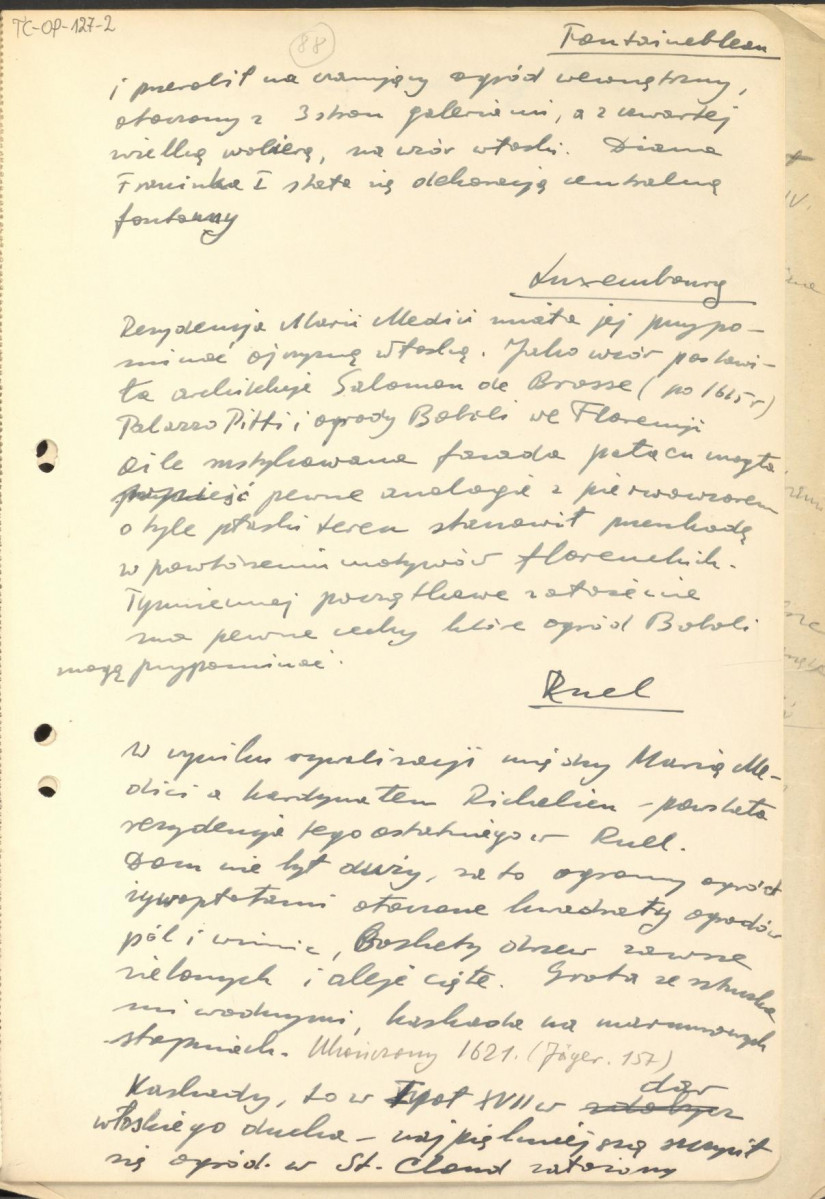 TC-OP-127-2
88
Fontainebleau
i przerobił na czarujący ogród wewnętrzny,
otoczony z 3 stron galeriami, a z czwartej
wielką wolierą, na wzór włoski. Diana
Franciszka I stała się dekoracją centralną
fontanny
Luxembourg
Rezydencja Marii Medici miała jej przypo-
minać ojczyznę włoską. Jako wzór postawi-
ła architekcie Salomon de Brosse (po 1615 r)
Palazzo Pitti i ogrody Boboli we Florencji
O ile fasada pałacu mogła
pewne analogie z pierwowzorem
o tyle płaski teren stanowił przeszkodę
w powtórzeniu motywów florenckich.
Tymniemniej początkowe założenie
ma pewne cechy które ogród Boboli
mogą przypominać.
Ruel
W wyniku rywalizacji między Marią Me-
dici a kardynałem Richelieu – powstała
rezydencja tego ostatniego w Ruel.
Dom nie był duży, za to ogromny ogród
żywopłotami otoczone kwadraty ogrodów
pól i winnic, Boskiety drzew zawsze
zielonych i aleje cięte. Grota ze sztuczka
mi wodnymi, kaskada na marmurowych
stopniach. Ukończony 1621. (Jäger. 157)
Kaskady, to w I poł XVII w dar
włoskiego ducha – najpiękniejszą szczycił
się ogród w St. Cloud założony